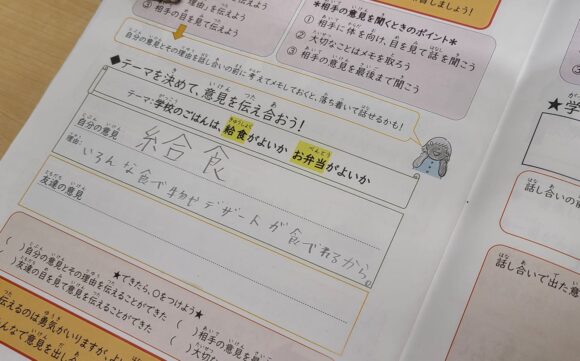 ② 理由」を伝えよう
③ 相手の目を見て伝えよう
自分の意見とその理由を話し合いの前に考えてメモしておくと、落ち着いて話せるかも!
＊相手の意見を聞くときのポイント＊
① 相手に体を向け、目を見て話を聞こう
② 大切なことはメモを取ろう
③ 相手の意見を最後まで聞こう
◆テーマを決めて、意見を伝え合おう!
テーマ:学校のごはんは、給食がよいか お弁当がよいか
自分の意見
給食
理由:
いろんな食べ物やデザートが食べれるから。
友達の意見
★できたら、○をつけよう★
( )自分の意見とその理由を伝えることができた
( )友達の目を見て意見を伝えることができた
( )相手の意見を
( )大切な
伝えるのは勇気がいりますが、
んなで意見を出し
★学
話し合いの前
話し合いで出た意